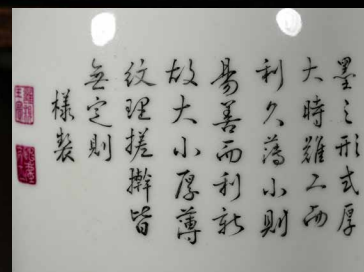 墨之形式厚
大時難工而
利久薄小則
易善而利新
故大小厚薄
紋理搓擀皆
無定則
樣製